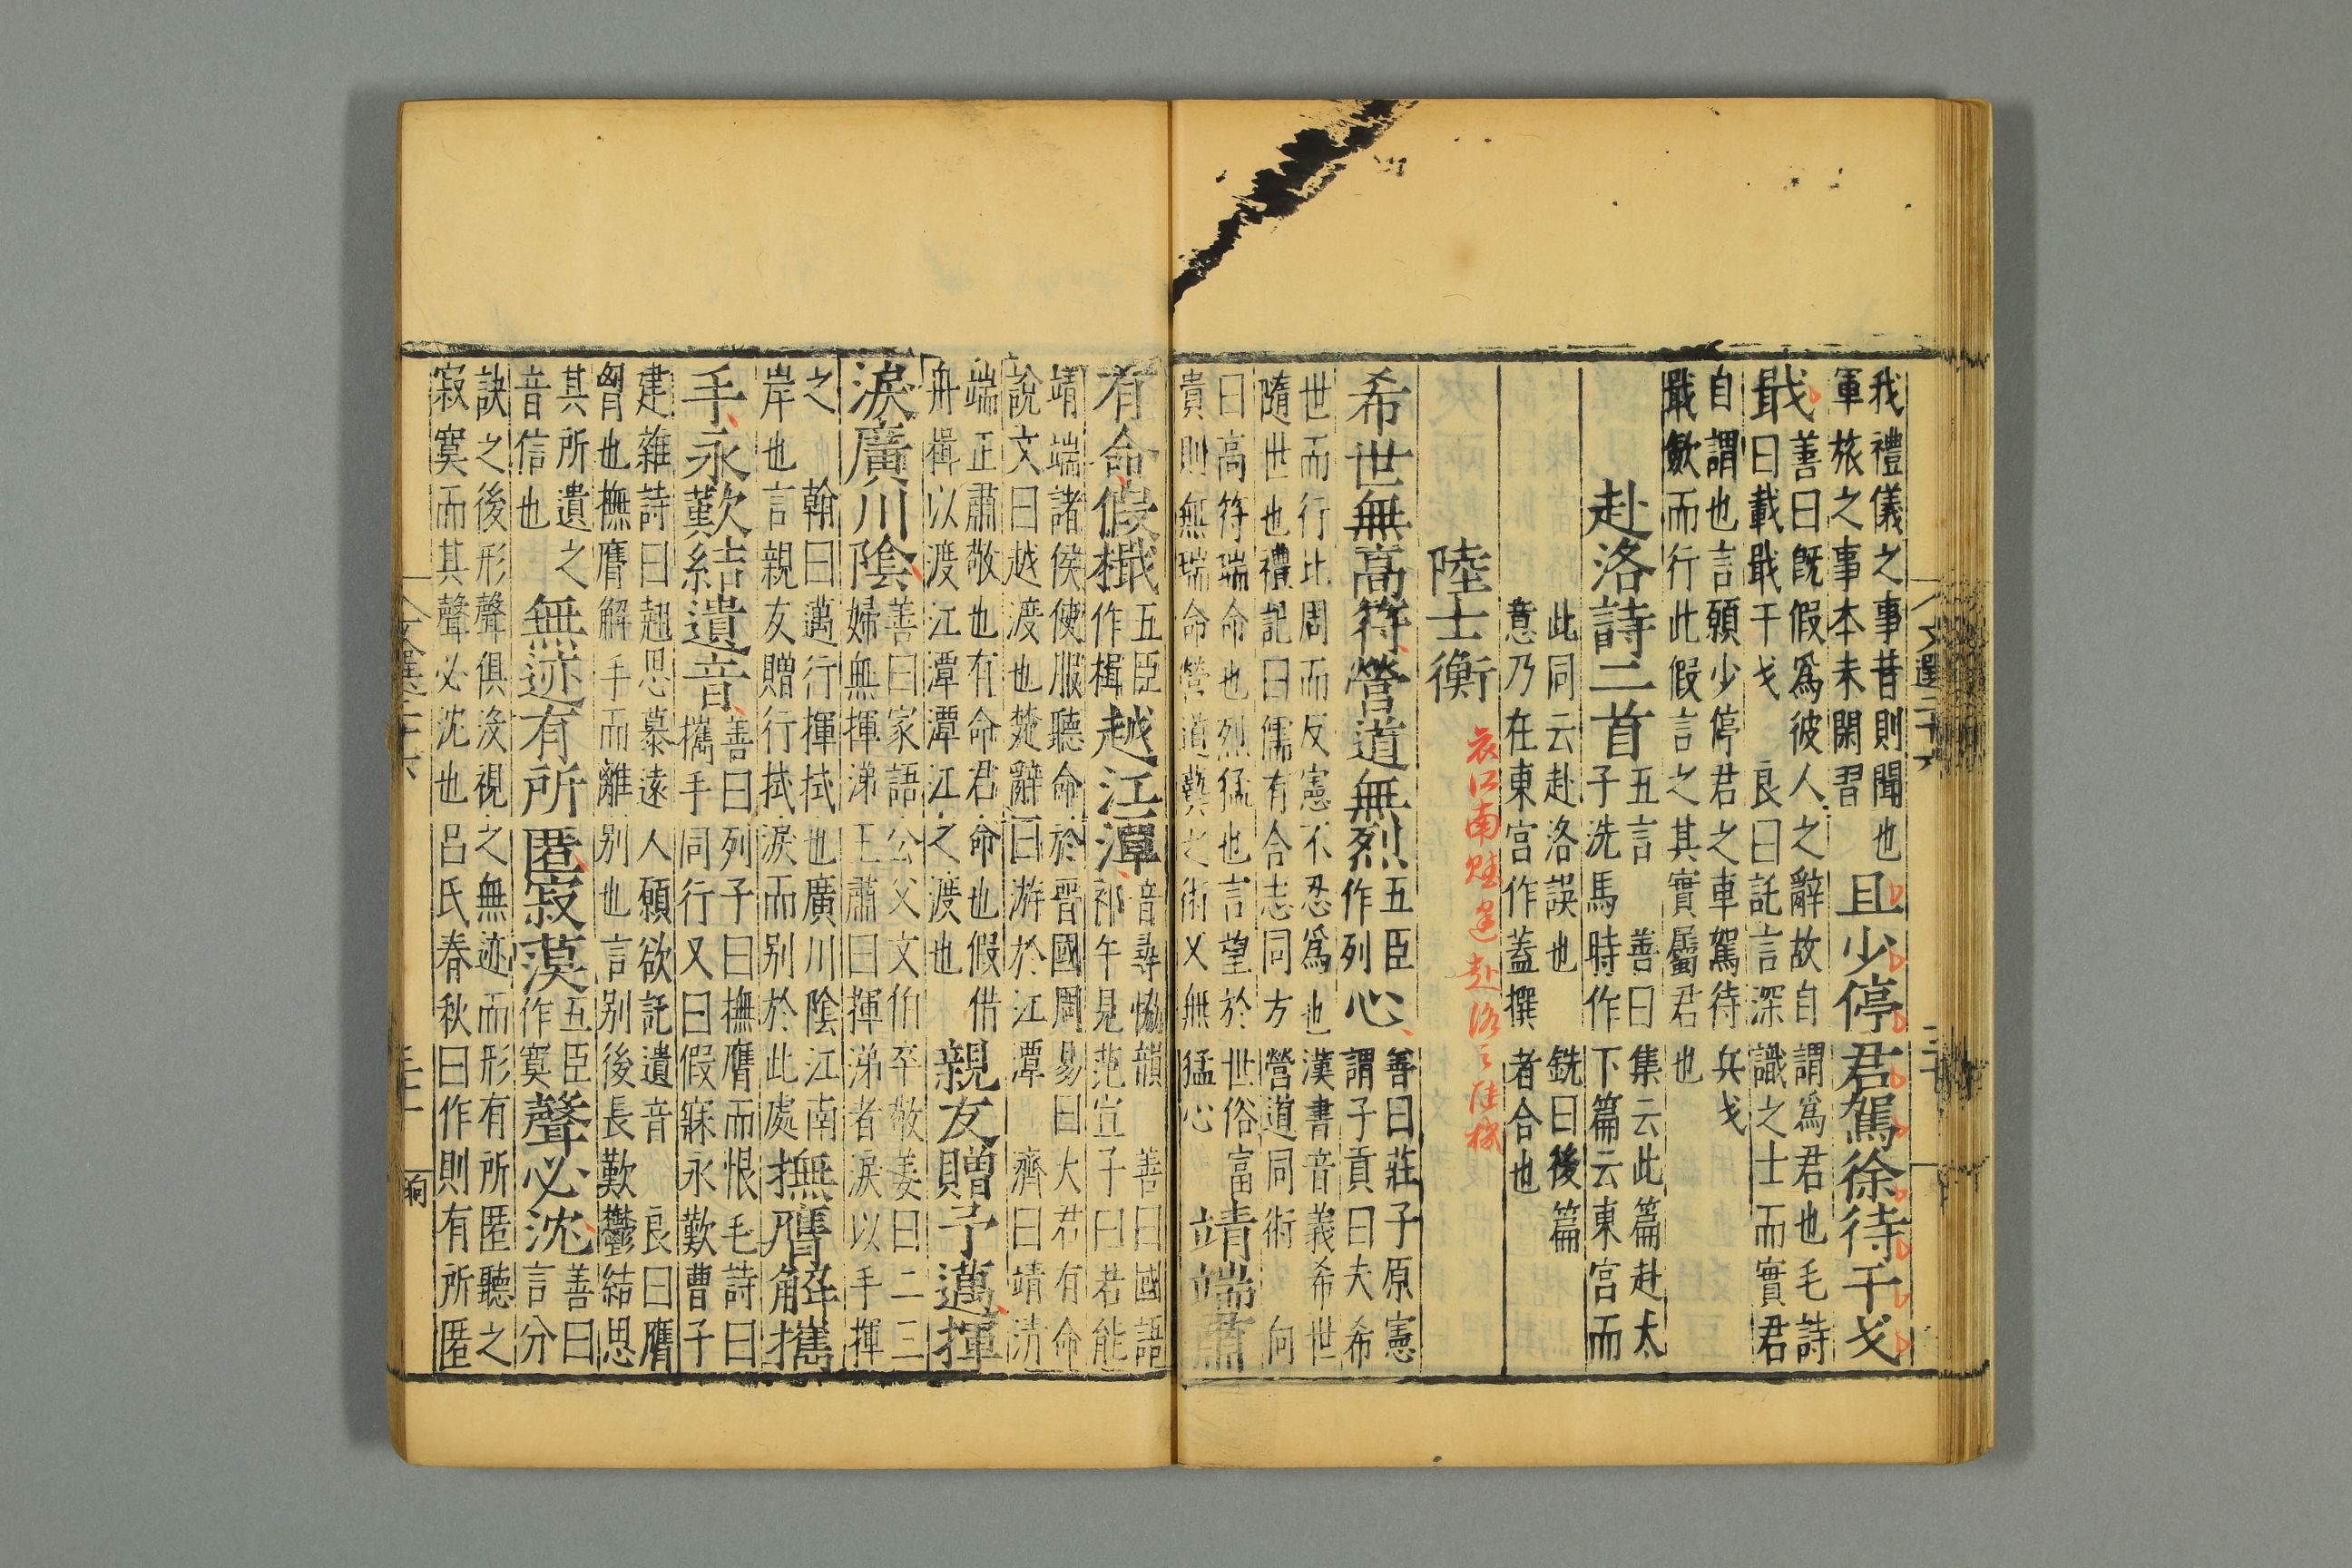 我禮儀之事昔則聞也
軍旅之事本未閑習
且少停君駕徐待干戈
戢
善曰旣假爲彼人之辭故自謂爲君也毛詩
曰載戢干戈 良曰託言深識之士而實君
自謂也言願少停君之車駕待兵戈
戢歛而行此假言之其實屬君也
赴洛詩二首
五言 善曰集云此篇赴太
子洗馬時作下篇云東宮而
此同云赴洛誤也 銑曰後篇
意乃在東宮作蓋撰者合也
陸士衡
哀江南賦逢赴洛之陸機
希世無高符營道無烈
五臣
作列
心
善曰莊子原憲
謂子貢曰夫希
世而行比周而反憲不忍爲也漢書音義希世
隨世也禮記曰儒有合志同方營道同術 向
曰高符瑞命也烈猛也言望於世俗富
貴則無瑞命營道藝之術又無猛心
靖端肅
有命假檝
五臣
作楫
越江潭
音尋協韻 善曰國語
祁午見范宣子曰若能
靖端諸侯使服聽命於晉國周易曰大君有命
說文曰越渡也楚辭曰游於江潭 濟曰靖清
端正肅敬也有命君命也假借
舟楫以渡江潭潭江之渡也
親友贈予邁揮
淚廣川陰
善曰家語公父文伯卒敬姜曰二三
婦無揮涕王肅曰揮涕者淚以手揮
之 翰曰邁行揮拭也廣川陰江南
岸也言親友贈行拭淚而别於此處
撫膺解攜
手永歎結遺音
善曰列子曰撫膺而恨毛詩曰
攜手同行又曰假寐永歎曹子
建雜詩曰翹思慕遠人願欲託遺音 良曰膺
胷也撫膺解手而離别也言别後長歎鬱結思
其所遺之
音信也
無迹有所匿寂漠
五臣
作寞
聲必沈
善曰
言分
訣之後形聲俱没視之無迹而形有所匿聽之
寂寞而其聲必沈也呂氏春秋曰作則有所匿